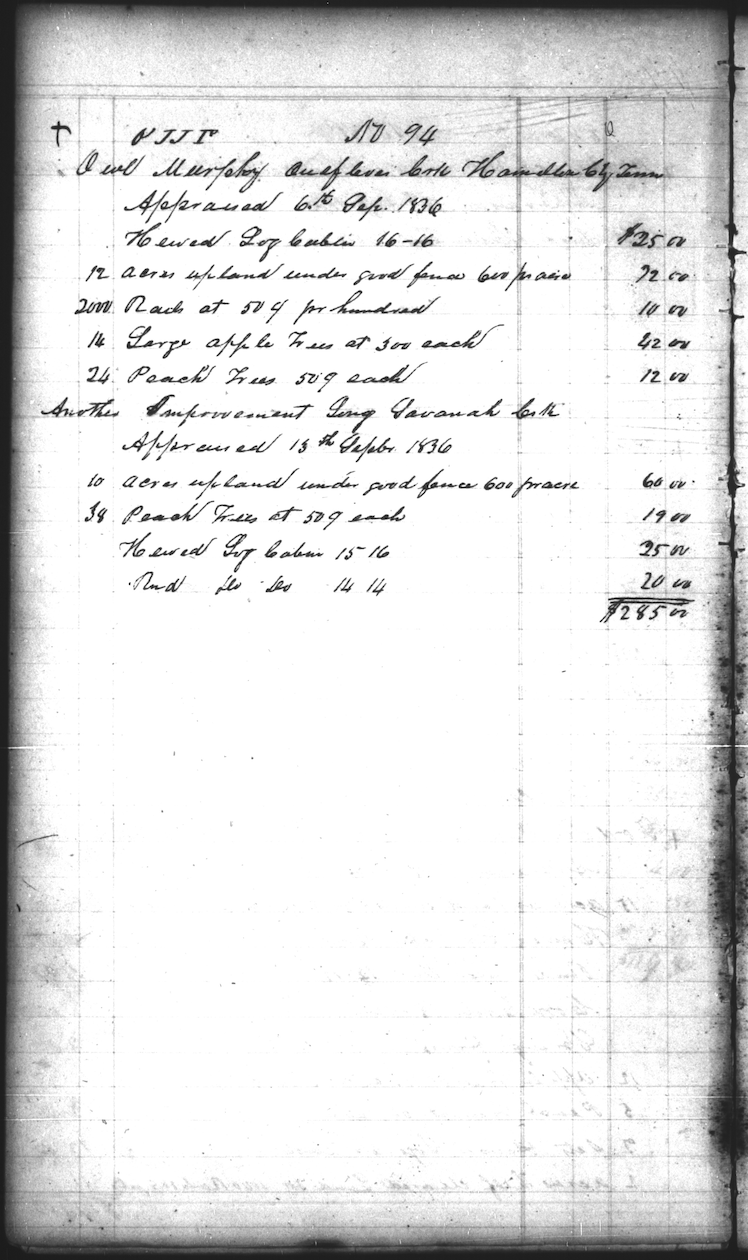 No 94
Owl Murphy Ooltewa Crk Hamilton Cty Tenn
Appraised 6th Sep. 1836
Hewed Log Cabin 16-16 $25 00
12 acres upland under good fence 600 pr acre 72 00
2000 Rails at 50¢ pr hundred 10 00
14 Large apple Trees at 300 each 42 00
24 Peach Trees 50¢ each 12 00
Another Improvement Long Savanah Crk
Appraised 13th Sepbr. 1836
10 acres upland under good fence 600 pr acre 60 00
38 Peach Trees at 50¢ each 19 00
Hewed Log Cabin 15-16 25 00
Rnd Do Do 14 14 20 00
$285 00